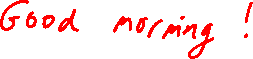 Good morning !